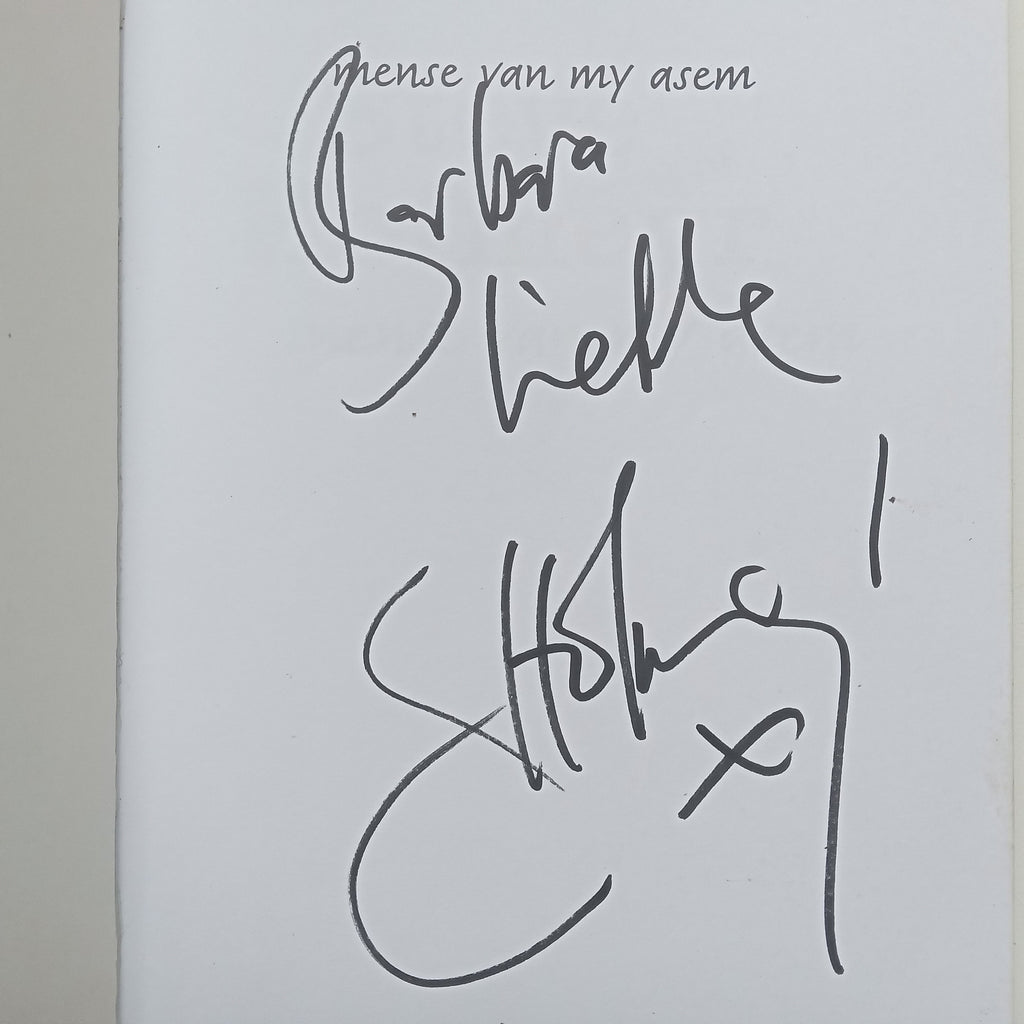 mense van my asem
Barbara
Liefde
x